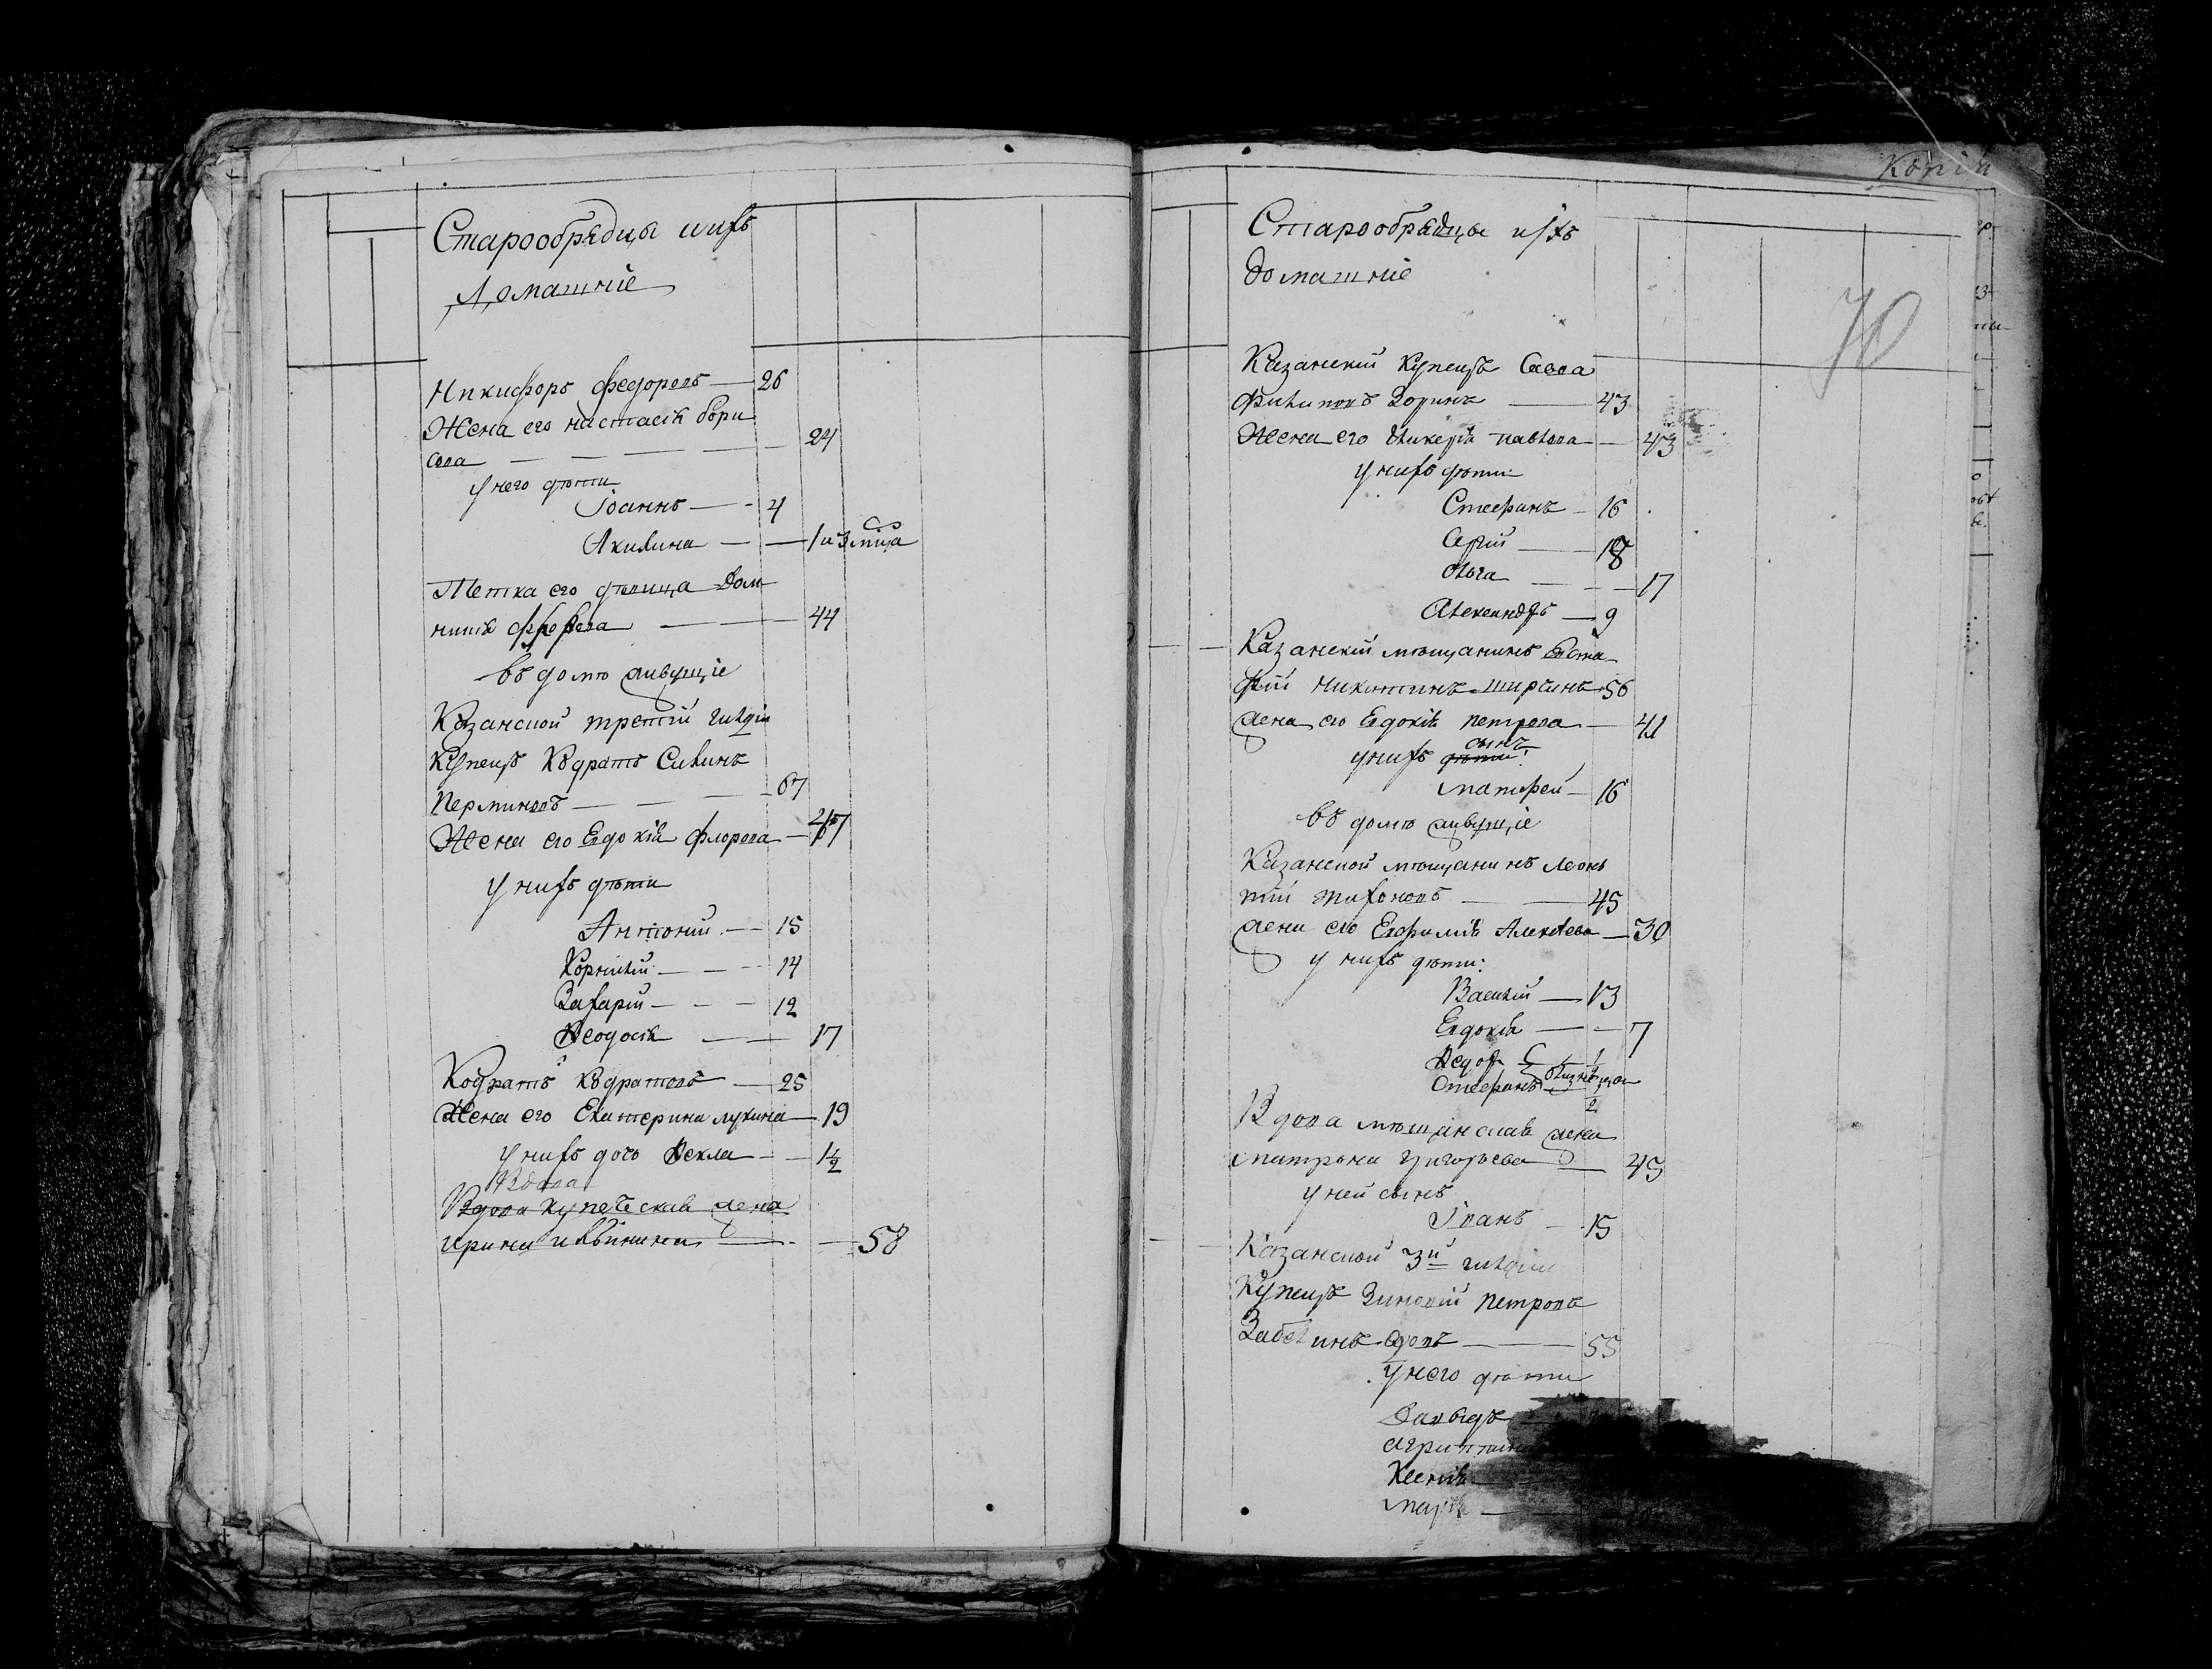 Старообрядцы и ихъ
Домашнiе
Никифоръ Федоровъ — 26
Жена его настасiя бори
сова — — — — 24
у него дѣти
Iоаннъ — - 4
Акилина — — 1 и 3 мѣца
Тетка его дѣвица Дом
никiя Фролова — — 44
въ домѣ живущiе
Казанской третiй гилдiи
Купецъ Кодратъ Силинъ
Перминовъ — — — 67
Жена его Евдокiя флорова — 47
У нихъ дѣти
Антонiй — 15
Корнилiй — — 14
Захарiй — — 12
Ѳеодосiя — — 17
Кодратъ Кодратовъ — 25
Жена его Екатерина лукина — 19
у нихъ дочь Ѳекла — 1½
Вдова
Вдова купеческая жена
ирина — — 58
Копiя
70
Старообрядцы и ихъ
домашнiе
Казанскiй Купецъ Савва
Филиповъ Зоринъ — 43
Жена его Гликерiя павлова — 43
у нихъ дѣти
Стефанъ — 16
Сергiй — 18
Олга — — 17
Александръ — 9
Казанскiй мѣщанинъ Евста
фiй никитинъ ширѣинъ 56
жена его Евдокiя петрова — 41
у нихъ дѣти сынъ
матфей — 16
въ домѣ живущiе
Казанской мѣщанинъ Леонъ
тiй тихоновъ — 45
жена его Евфимiя Алексѣева — 30
у нихъ дѣти:
Василiй — 13
Евдокiя — — 7
Ѳедоръ
Стефанъ близнецы 1/2
Вдова мѣщанская жена
матрона григорьева — 45
у ней сынъ
Iоанъ — 15
Казанской 3й гилдiи
Купецъ Зиновiй петровъ
вдовъ — 55
У него дѣти
Давыдъ
агрипина
Ксенiя
марiя —